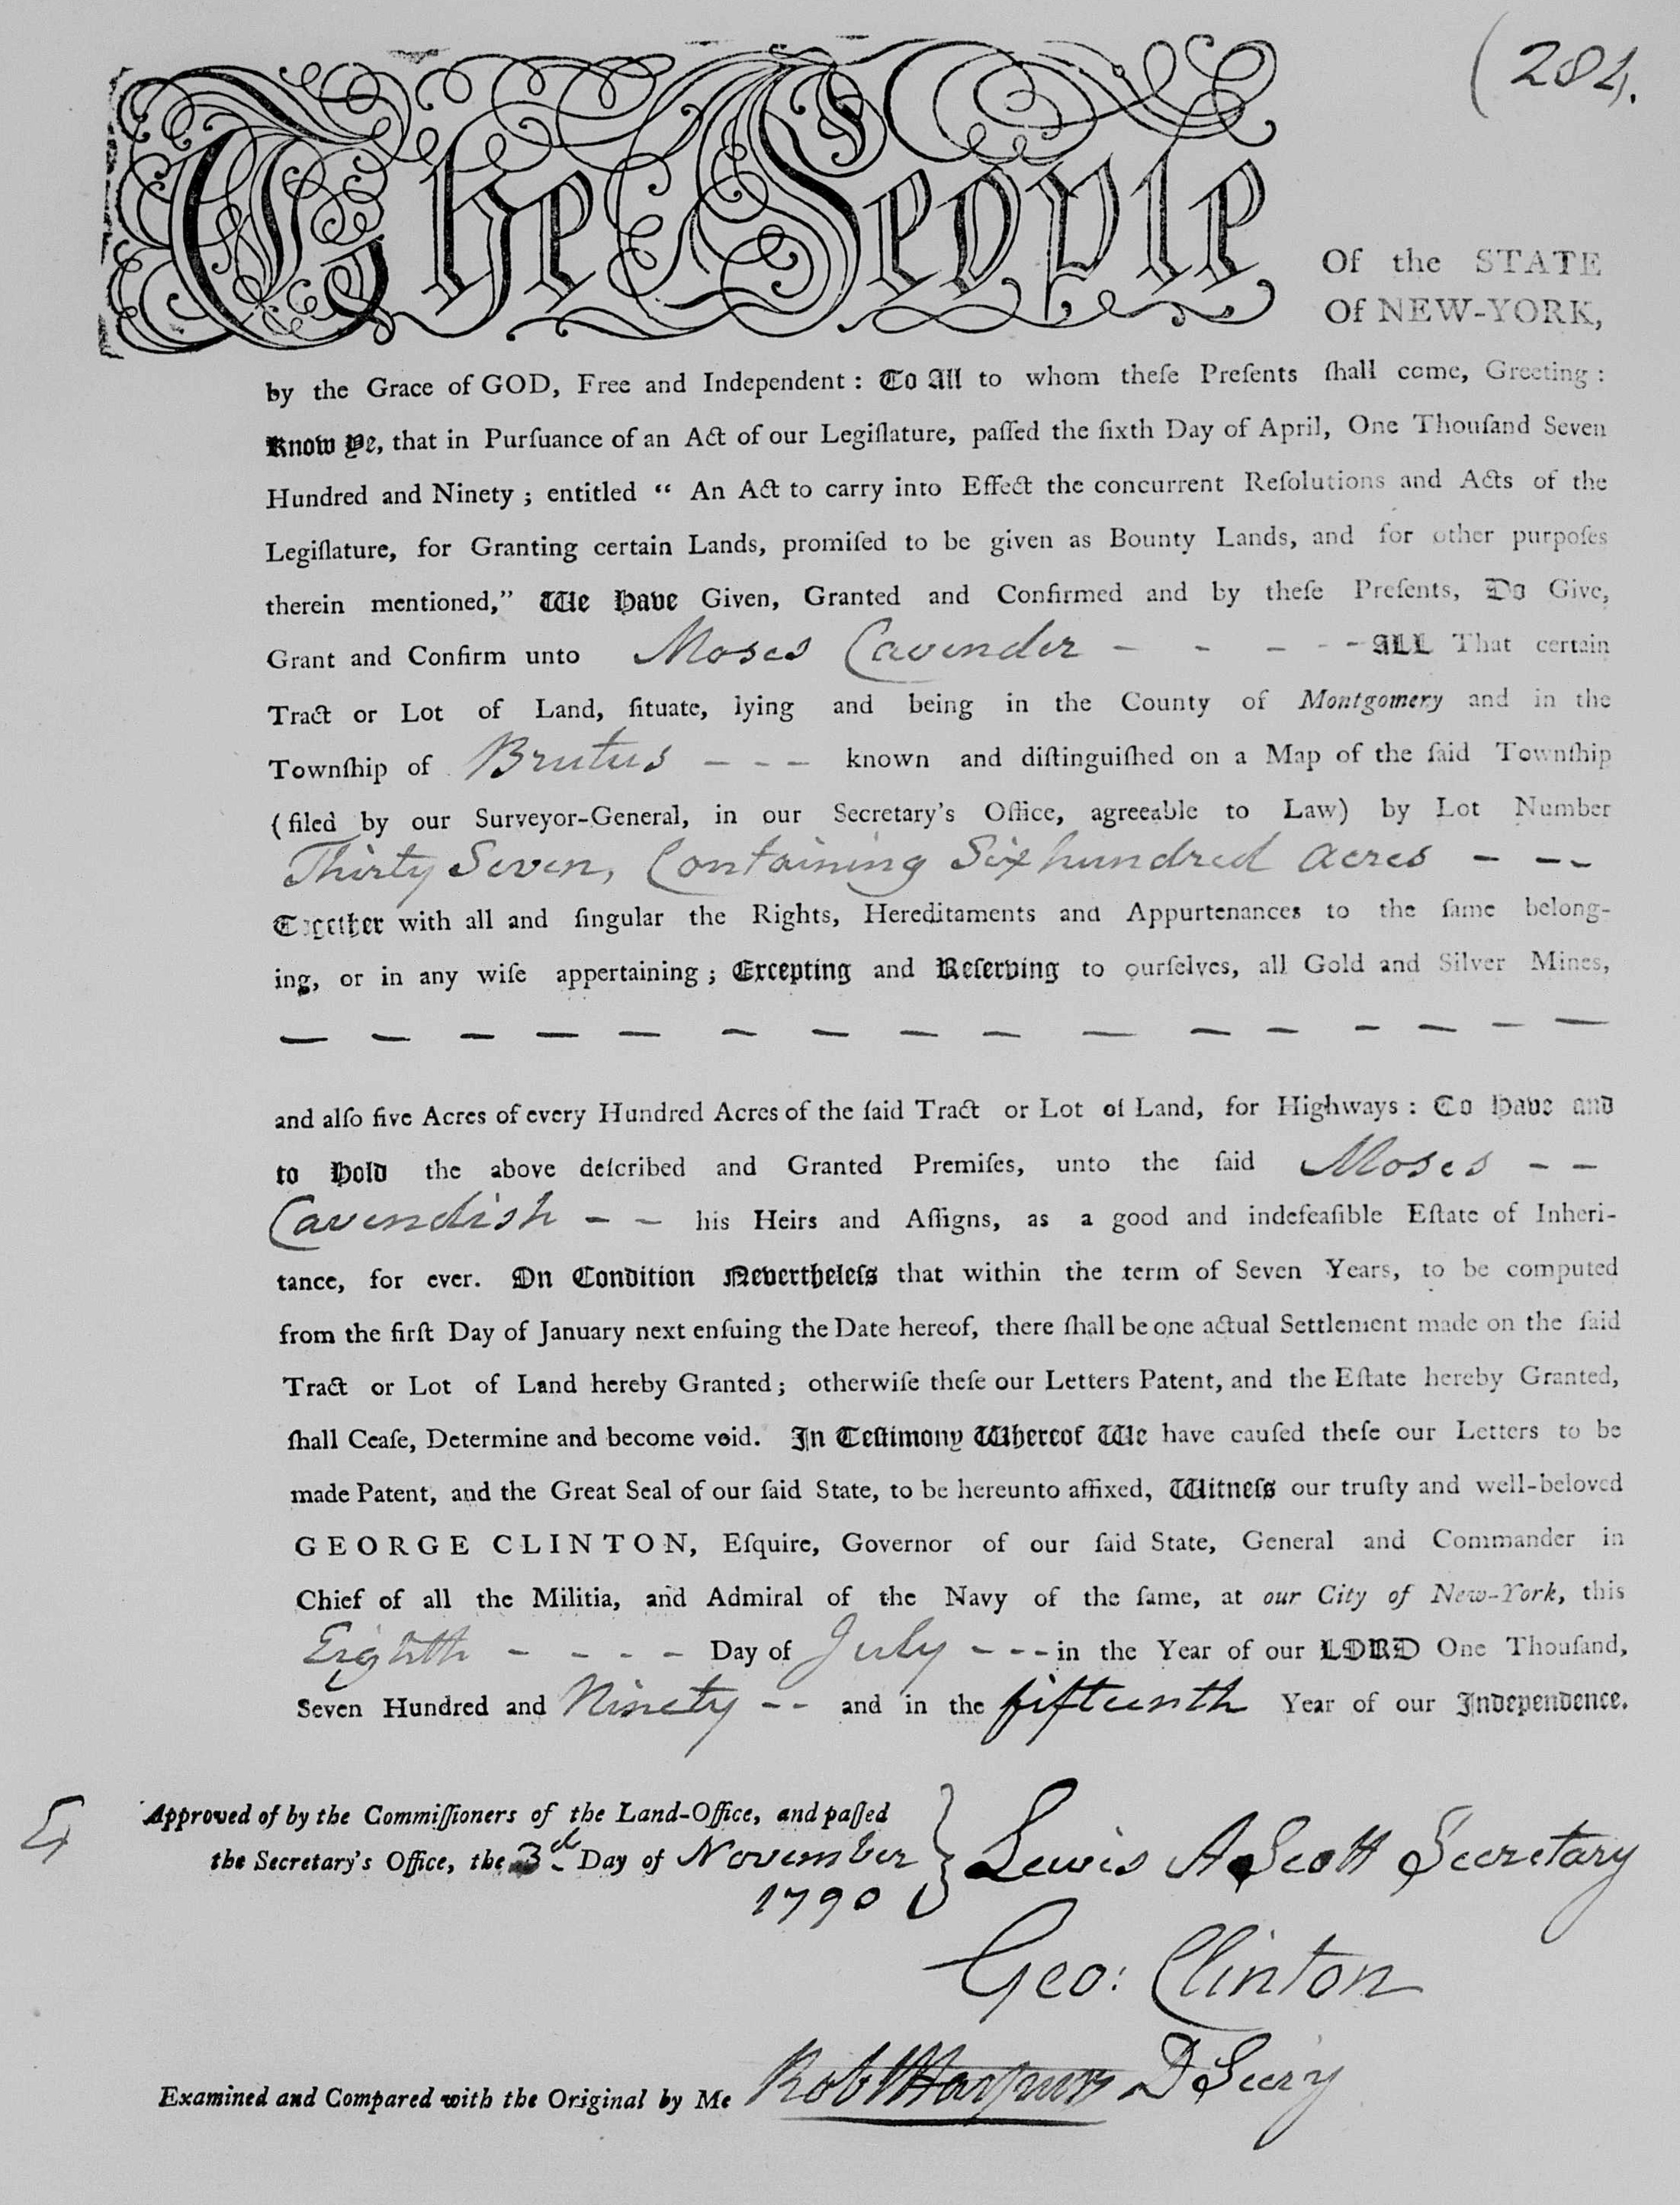 (284.
The People
Of the STATE
Of NEW-YORK,
by the Grace of GOD, Free and Independent : To All to whom theſe Preſents ſhall come, Greeting :
Know Ye, that in Purſuance of an Act of our Legiſlature, paſſed the ſixth Day of April, One Thouſand Seven
Hundred and Ninety ; entitled “ An Act to carry into Effect the concurrent Reſolutions and Acts of the
Legiſlature, for Granting certain Lands, promiſed to be given as Bounty Lands, and for other purpoſes
therein mentioned,” We Have Given, Granted and Confirmed and by theſe Preſents, Do Give,
Grant and Confirm unto Moses Cavender - - - - - ALL That certain
Tract or Lot of Land, ſituate, lying and being in the County of Montgomery and in the
Townſhip of Brutus - - - known and diſtinguiſhed on a Map of the ſaid Townſhip
(filed by our Surveyor-General, in our Secretary’s Office, agreeable to Law) by Lot Number
Thirty Seven, Containing Six hundred acres - - -
Together with all and ſingular the Rights, Hereditaments and Appurtenances to the ſame belong-
ing, or in any wiſe appertaining ; Excepting and Reſerving to ourſelves, all Gold and Silver Mines,
— — — — — — — — — — — — — — — —
and alſo five Acres of every Hundred Acres of the ſaid Tract or Lot of Land, for Highways : To Have and
to Hold the above deſcribed and Granted Premiſes, unto the ſaid Moses - -
Cavendish - - his Heirs and Aſſigns, as a good and indefeaſible Eſtate of Inheri-
tance, for ever. On Condition Nevertheleſs that within the term of Seven Years, to be computed
from the firſt Day of January next enſuing the Date hereof, there ſhall be one actual Settlement made on the ſaid
Tract or Lot of Land hereby Granted ; otherwiſe theſe our Letters Patent, and the Eſtate hereby Granted,
ſhall Ceaſe, Determine and become void. In Teſtimony Whereof We have cauſed theſe our Letters to be
made Patent, and the Great Seal of our ſaid State, to be hereunto affixed, Witneſs our truſty and well-beloved
GEORGE CLINTON, Eſquire, Governor of our ſaid State, General and Commander in
Chief of all the Militia, and Admiral of the Navy of the ſame, at our City of New-York, this
Eighth - - - - Day of July - - - in the Year of our LORD One Thouſand,
Seven Hundred and Ninety - - and in the fifteenth Year of our Independence.
Approved of by the Commiſſioners of the Land-Office, and paſſed
the Secretary’s Office, the 3d Day of November
1790
Lewis A Scott Secretary
Geo: Clinton
Examined and Compared with the Original by Me Robt Harpur D Secry